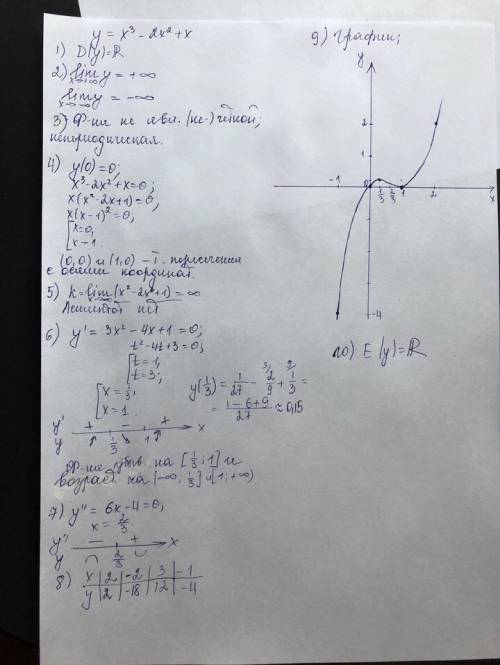 y = x³ - 2x² + x
1) D(y)=ℝ
2) lim y = +∞
x→+∞
lim y = -∞
x→-∞
3) Ф-ия не явл. (не-) чётной;
непериодическая.
4) y(0)=0;
x³-2x²+x=0;
x(x²-2x+1)=0;
x(x-1)²=0;
[x=0,
x=1.
(0,0) и (1,0) – т. пересечения
с осями координат.
5) k=lim(x²-2x+1)=∞
Асимптот нет
6) y' = 3x² - 4x + 1 = 0;
t²-4t+3=0;
[t=1,
t=3;
[x=1/3,
x=1.
y(1/3) = 1/27 - 2/9 + 1/3 =
= (1-6+9)/27 ≈ 0,15
y' + - + x
y 1/3 1
Ф-ия убыв на [1/3;1] и
возраст. на [-∞; 1/3] и [1;+∞)
7) y'' = 6x-4=0,
x = 2/3.
y'' - + x
y 2/3
8) x | 2 | -2 | 3 | -1
y | 2 | -18 | 12 | -4
9) График;
y
2
1
-1 0 1/3 2/3 1 2 x
-4
10) E(y)=ℝ